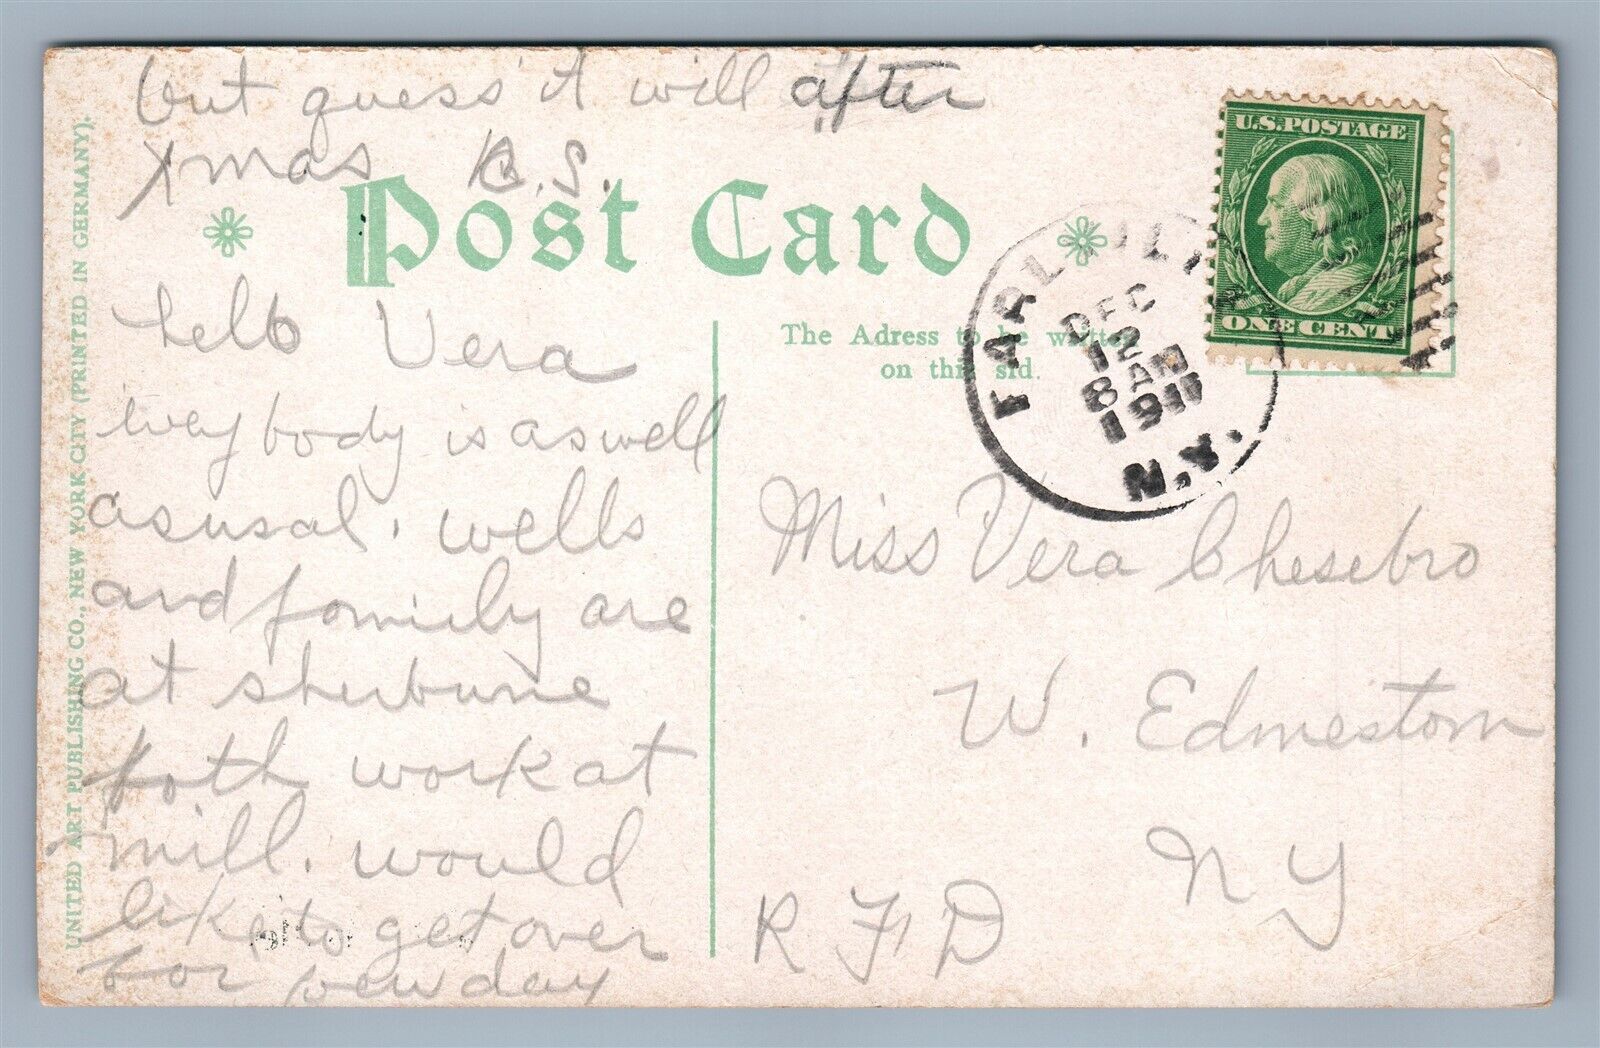 but guess it will after
Xmas B.S.
Post Card
hello Vera
every body is as well
as usal. wells
and fomiely are
at sherburne
both work at
mill. would
like to get over
for few day
The Adress to be written
on this sid.
EARLVILLE
DEC
12
8 AM
1911
N.Y.
U.S. POSTAGE
ONE CENT
Miss Vera Chesebro
W. Edmestom
N Y
R F D
UNITED ART PUBLISHING CO., NEW YORK CITY (PRINTED IN GERMANY).